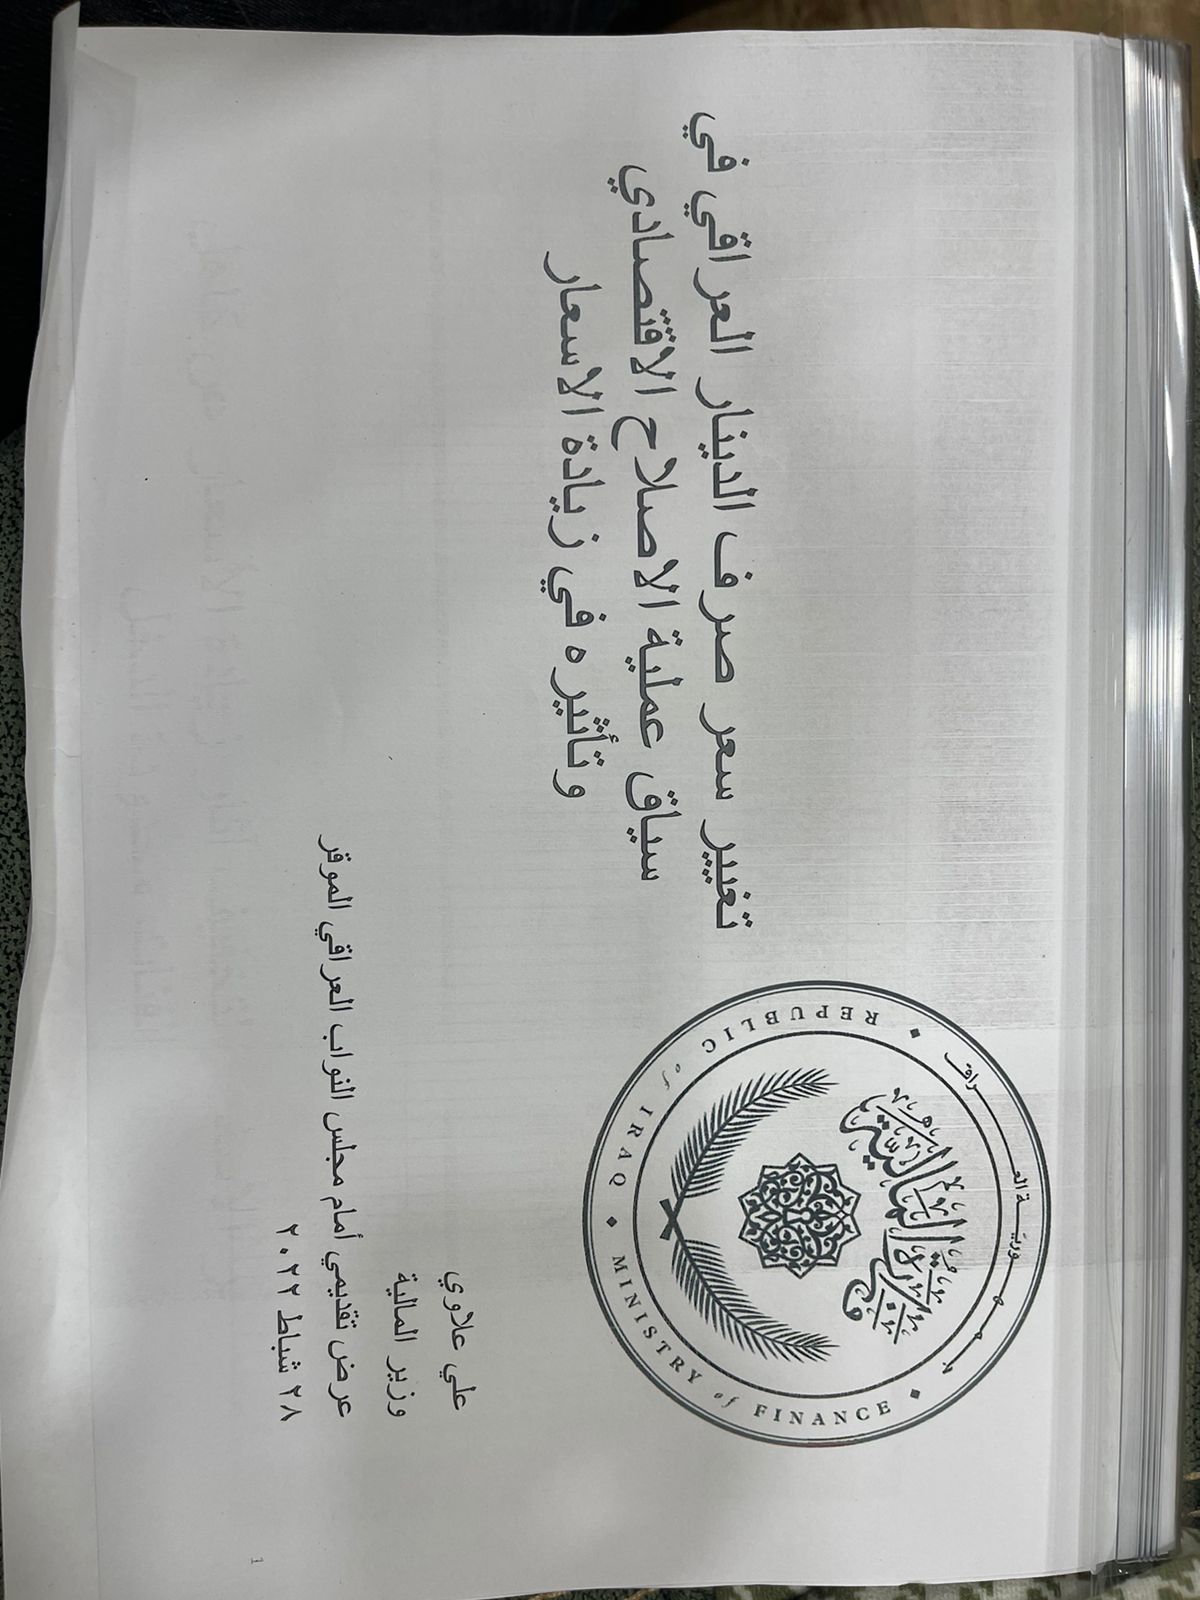 جمهورية العراق
وزارة المالية
REPUBLIC of IRAQ ◆ MINISTRY of FINANCE
تغيير سعر صرف الدينار العراقي في
سياق عملية الاصلاح الاقتصادي
وتأثيره في زيادة الاسعار
علي علاوي
وزير المالية
عرض تقديمي أمام مجلس النواب العراقي الموقر
٢٨ شباط ٢٠٢٢
1